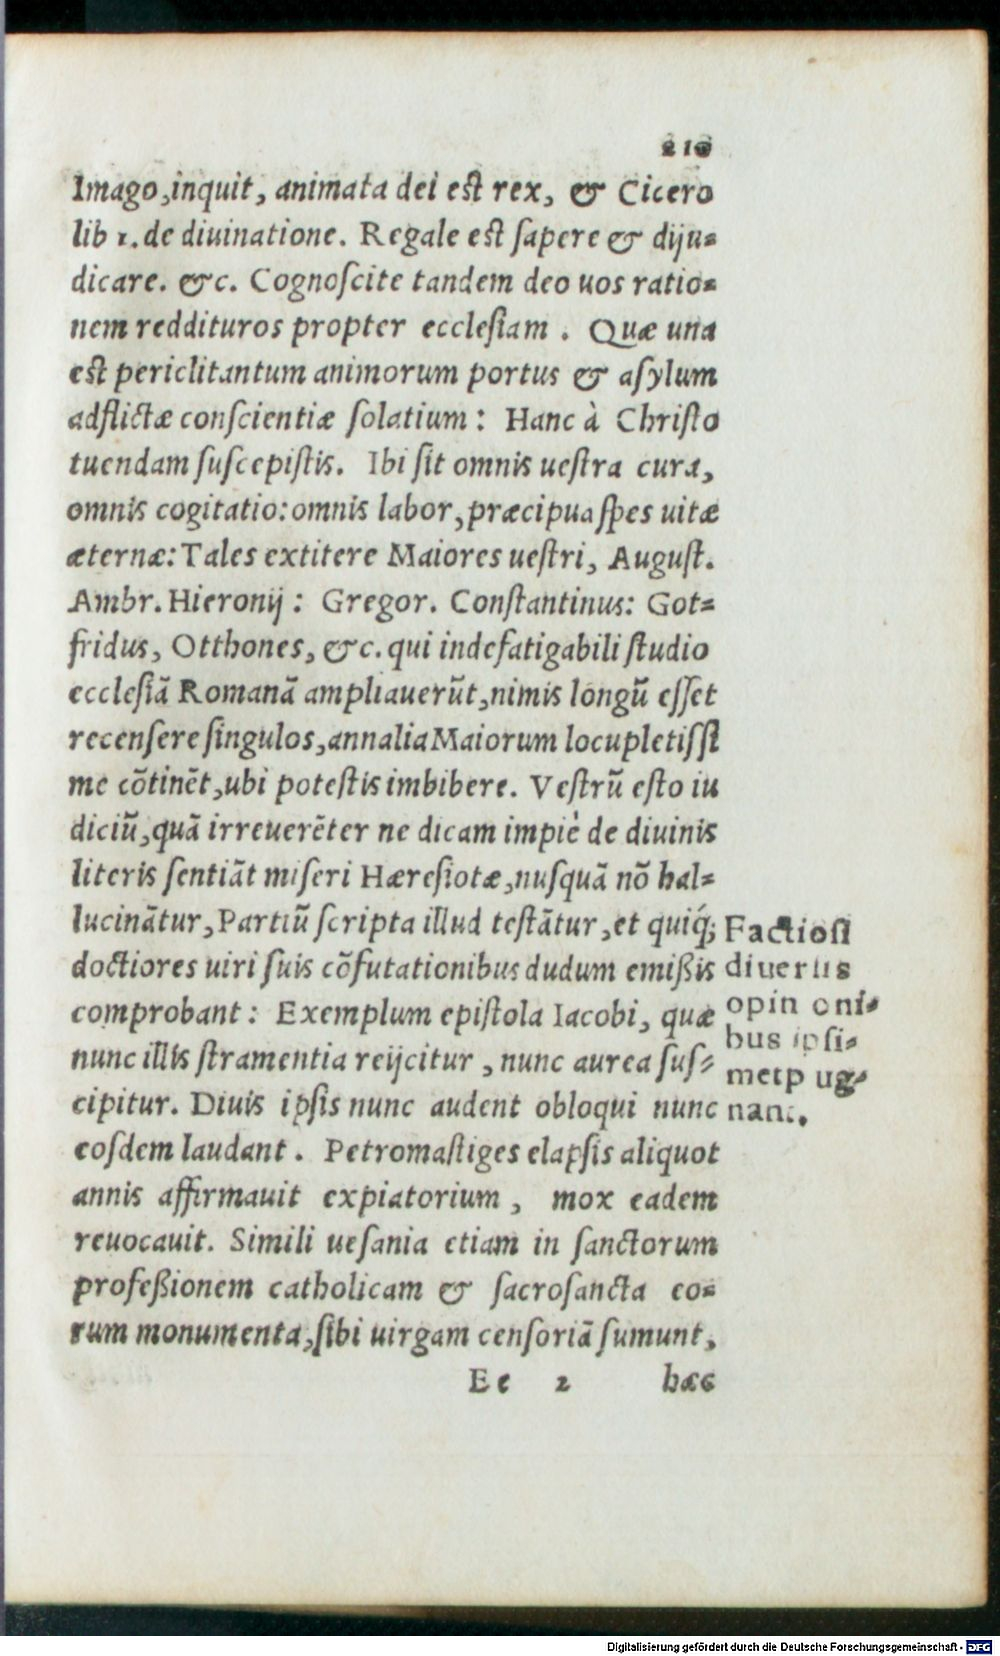 210
Imago, inquit, animata dei est rex, & Cicero
lib 1. de diuinatione. Regale est sapere & diju-
dicare. &c. Cognoscite tandem deo uos ratio-
nem reddituros propter ecclesiam. Quæ una
est periclitantum animorum portus & asylum
adflictæ conscientiæ solatium: Hanc à Christo
tuendam suscepistis. Ibi sit omnis uestra cura,
omnis cogitatio: omnis labor, præcipua spes uitæ
æternæ: Tales extitere Maiores uestri, August.
Ambr. Hieronij: Gregor. Constantinus: Got-
fridus, Otthones, &c. qui indefatigabili studio
ecclesiã Romanã ampliauerũt, nimis longũ esset
recensere singulos, annalia Maiorum locupletissi
me cõtinẽt, ubi potestis imbibere. Vestrũ esto iu
diciũ, quã irreuerẽter ne dicam impiè de diuinis
literis sentiãt miseri Hæresiotæ, nusquã nõ hal-
lucinãtur, Partiũ scripta illud testãtur, et quiq́;
doctiores uiri suis cõfutationibus dudum emißis
comprobant: Exemplum epistola Iacobi, quæ
nunc illis stramentia reijcitur, nunc aurea sus-
cipitur. Diuis ipsis nunc audent obloqui nunc
eosdem laudant. Petromastiges elapsis aliquot
annis affirmauit expiatorium, mox eadem
reuocauit. Simili uesania etiam in sanctorum
profeßionem catholicam & sacrosancta eo-
rum monumenta, sibi uirgam censoriã sumunt,
Ee 2 hæc
Factiosi
diuersis
opinioni-
bus ipsi-
metpug-
nant.
Digitalisierung gefördert durch die Deutsche Forschungsgemeinschaft - DFG